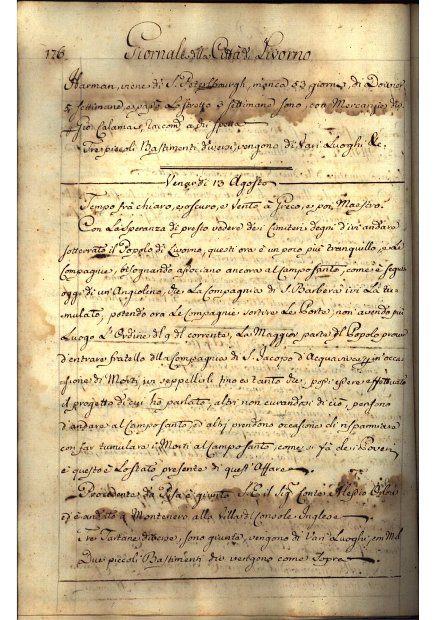 176. Giornale della Città di Livorno
Harman, viene di S. Petersbourgh, manca 53 giorni, di Dovvres
5 settimane, e passò Lo stretto 2 settimane sono, con Mercanzie
Gio: Calamai, raccom. a di Spetta
Tre piccoli Bastimenti diversi vengono di Vari Luoghi &c.
Venerdì 13 Agosto
Tempo frà chiaro, e oscuro, e Vento à Greco, e poi Maestro.
Con La Speranza di presto vedere de i Cimiteri degni d'ivi andare
sotterrato il Popolo di Livorno, questi ora è un poco più tranquillo, e Le
Compagnie, bisognando associano ancora al Campo santo, come è seguito
oggi di un'Angiolino, che La Compagnia di S. Barbera ivi Là tu-
mulato, potendo ora Le Compagnie sortire Le Porte, non avendo più
Luogo L'Ordine del 9 del corrente, La Maggior parte del Popolo procura
d'entrare fratello della Compagnia di S. Jacopo d'Acquaviva, e in occa-
sione di Morti, ivi seppellirli fino a tanto che, possi essere effettuato
il progetto di cui hò parlato, altri non curandosi di ciò, pensono
d'andare al Campo santo, e altri prendono occasione di risparmiare
con far tumulare i Morti al Campo santo, come si fà de i Poveri
e questo è Lo stato presente di quest'Affare
Procedente da Pisa è giunto S. E. il Sig. Conte Alessio Orlow
ed è andato à Montenero alla Villa del Console Inglese
Tre Tartane diverse, sono giunte, vengono di Vari Luoghi,
Due piccoli Bastimenti che vengono come sopra